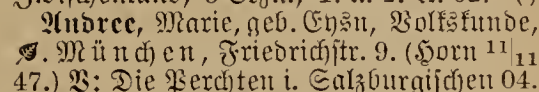 Andree, Marie, geb. Eysn, Volkskunde,
München, Friedrichstr. 9. (Horn 11/11
47.) V: Die Perchten i. Salzburgischen 04.